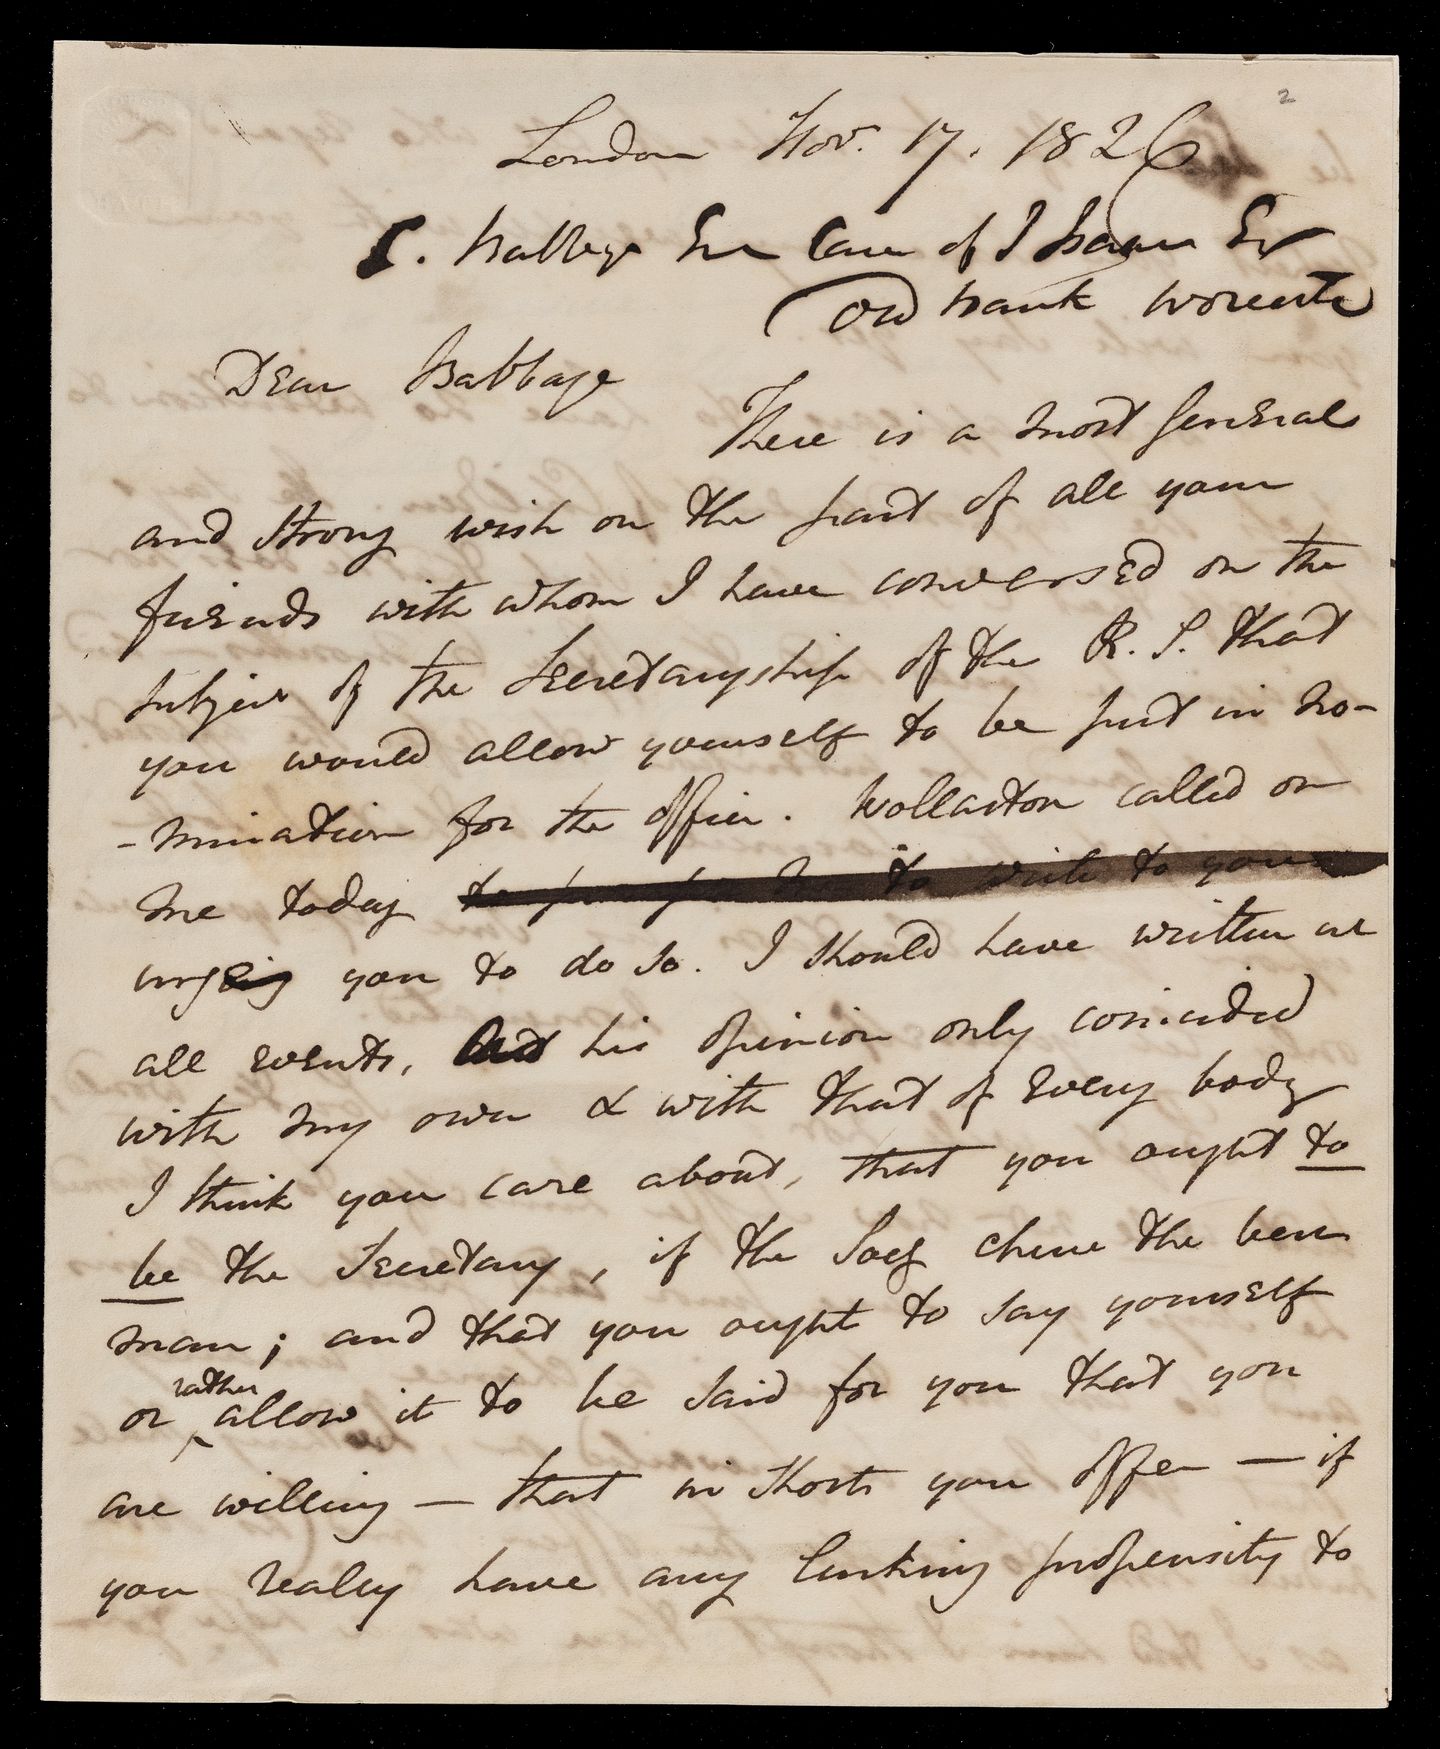 2
London Nov. 17. 1826
C. Babbage Esr Care of I Isaac Esr
Old Bank Worcester
Dear Babbage
There is a most general
and strong wish on the part of all your
friends with whom I have conversed on the
subject of the Secretaryship of the R. S. that
you would allow yourself to be put in no-
-mination for the office. Wollaston called on
me today to propose me to write to you
urging you to do so. I should have written at
all events, his opinion only coincided
with my own & with that of every body
I think you care about, that you ought to
be the Secretary, if the Socy chuse the best
man; and that you ought to say yourself
or rather allow it to be said for you that you
are willing — that in short you offer — if
you really have any lurking propensity to